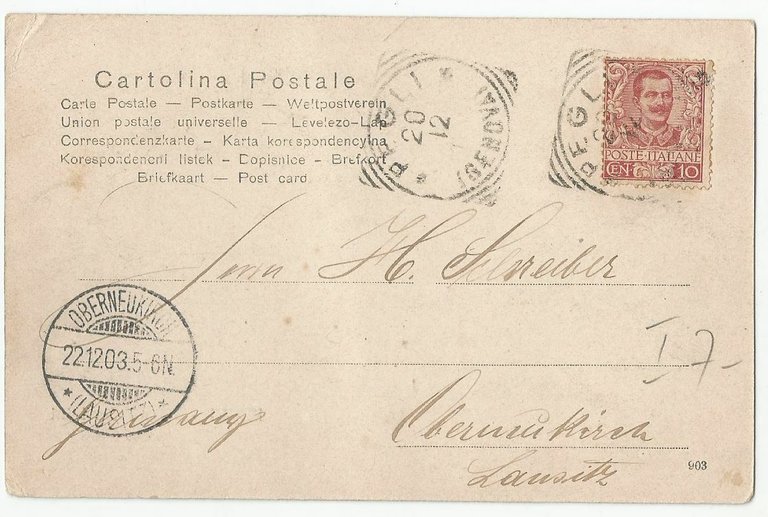 Cartolina Postale
Carte Postale — Postkarte — Weltpostverein
Union postale universelle — Levelezo-Lap
Correspondenzkarte - Karta korespondencyjna
Korespondencni listek - Dopisnice - Brefkort
Briefkaart — Post card
PEGLI * (GENOVA) *
20
12
PEGLI
POSTE·ITALIANE
CEN 10
Herrn H. Schreiber
OBERNEUKIRCH
22.12.03.5-6N.
* (LAUSITZ) *
I 7-
Germany
Oberneukirch
Lausitz
903